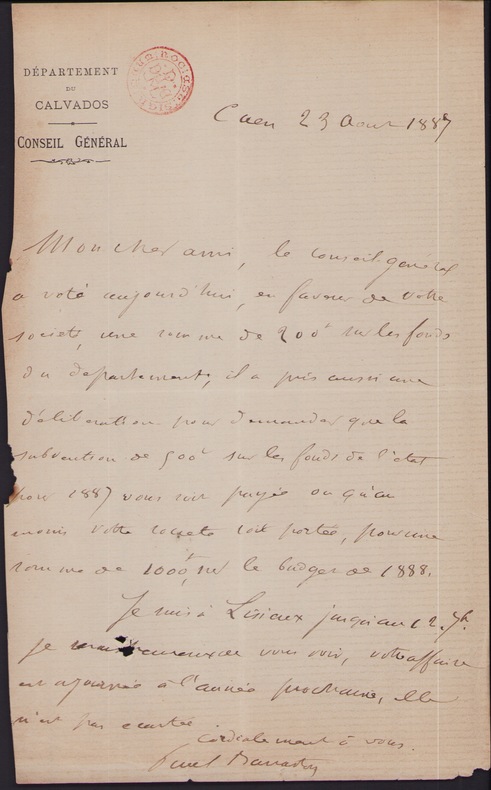 DÉPARTEMENT
DU
CALVADOS
CONSEIL GÉNÉRAL
Caen 23 Aout 1887
Mon cher ami, le conseil général
a voté aujourd'hui, en faveur de votre
société, une somme de 200f sur les fonds
du département, il a pris aussi une
délibération pour demander que la
subvention de 500f sur les fonds de l'état
pour 1887 vous soit payée ou qu'au
moins votre société soit portée, pour une
somme de 1000f, sur le budget de 1888.
Je suis à Lisieux jusqu'au 12 7b.
Je serais heureux de vous voir, votre affaire
est ajournée à l'année prochaine, elle
n'est pas écartée.
Cordialement à vous.
Paul